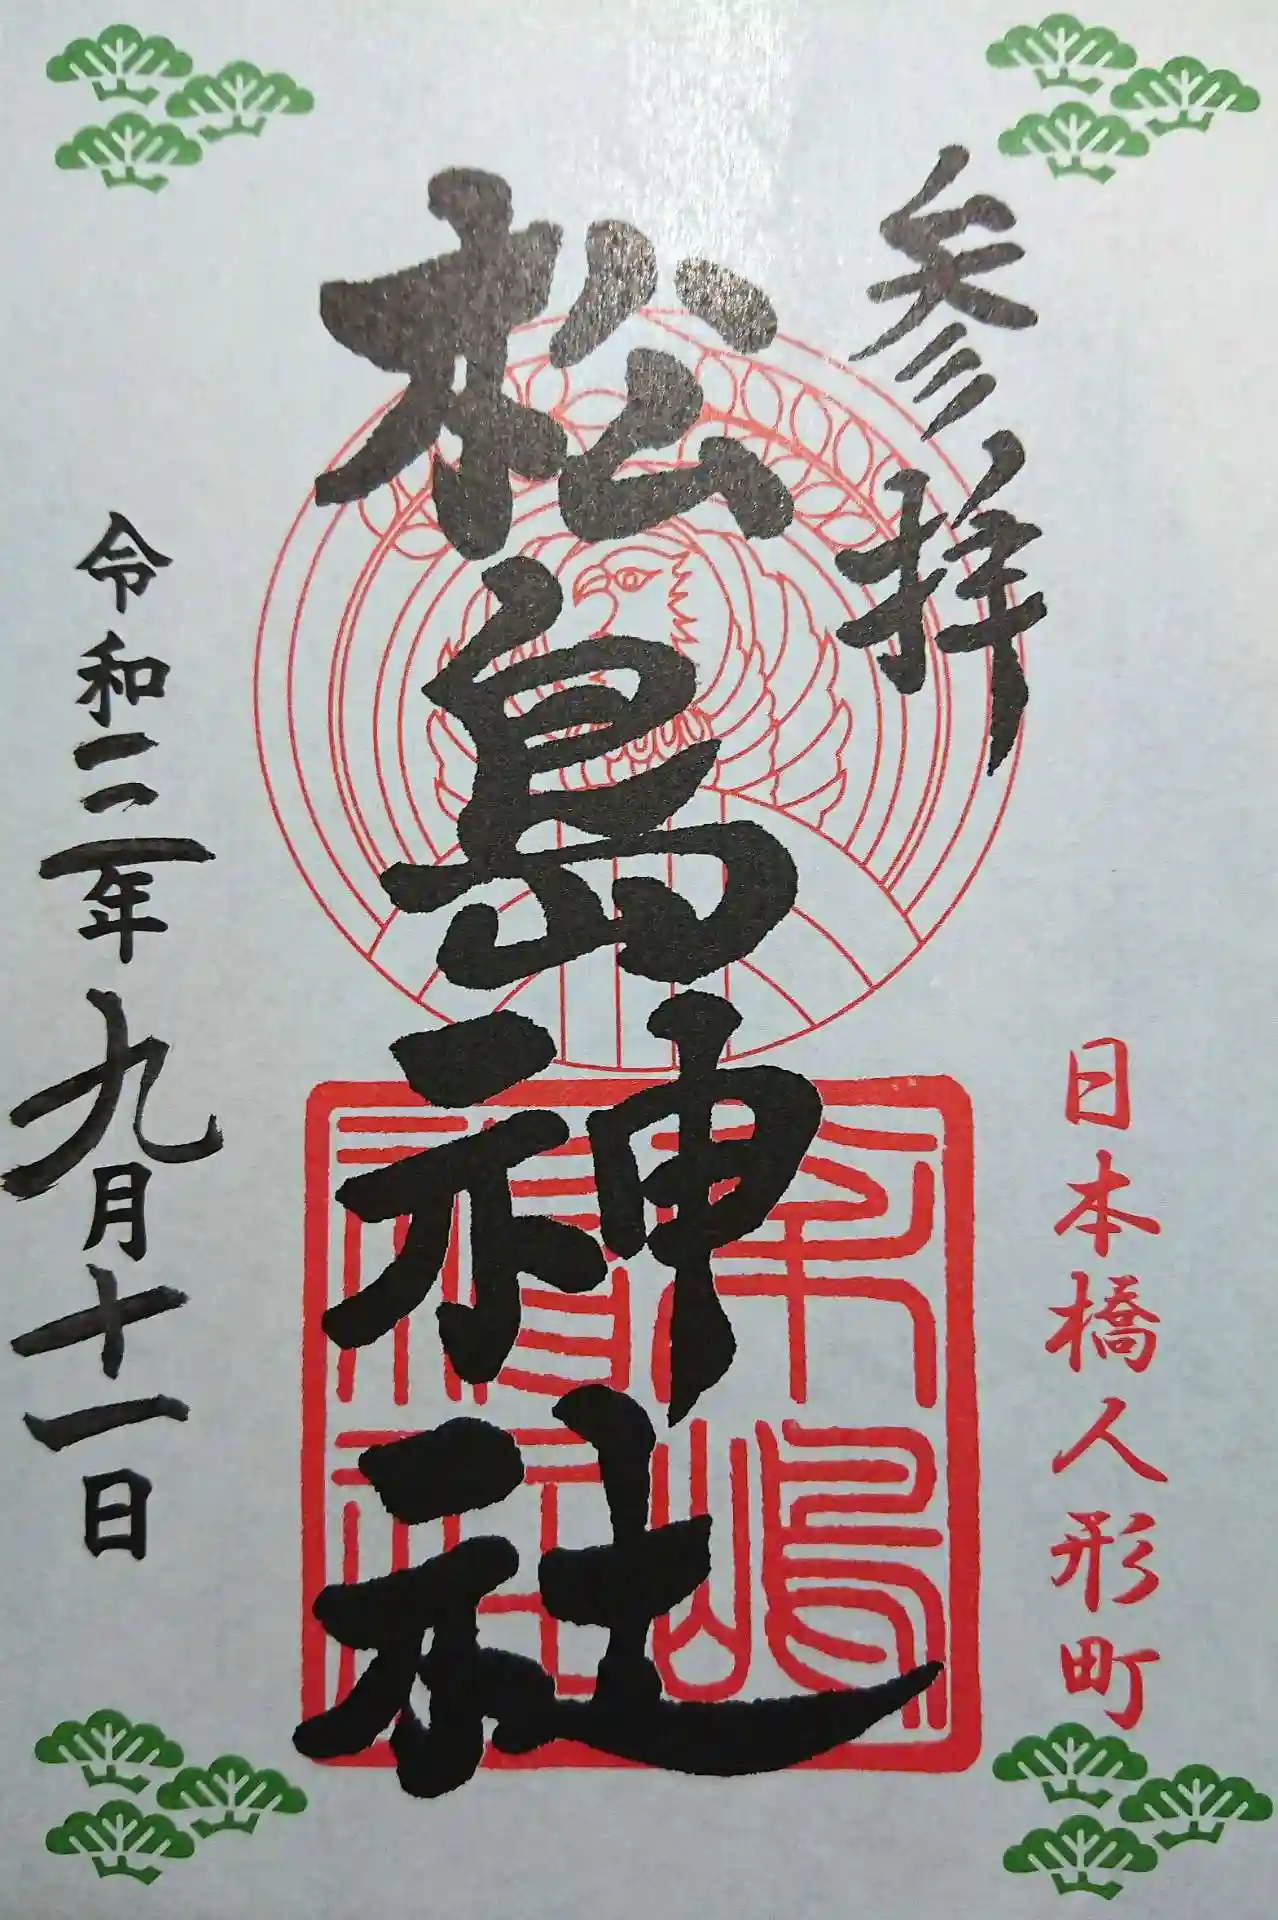 参拝
日本橋人形町
松島神社
松嶋神社
令和二年九月十一日